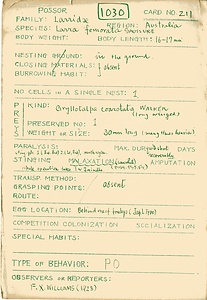 POSSOR 1030 CARD NO. 211
FAMILY: Larridæ REGION: Australia
SPECIES: Larra femorata Saussure
BODY WEIGHT: BODY LENGTH: 16-19 mm
NESTING GROUND: in the ground
CLOSING MATERIALS: absent
BURROWING HABIT:
NO CELLS IN A SINGLE NEST: 1
PREY
KIND: Gryllotalpa coarctata Walker
(long winged)
PRESERVED NO.: 1
WEIGHT OR SIZE: 30mm long
PARALYSIS: MAX. DUR. DAYS
STINGING MALAXATION AMPUTATION
TRANSP. METHOD:
GRASPING POINTS: absent
ROUTE:
EGG LOCATION: Behind
COMPETITION COLONIZATION SOCIALIZATION
SPECIAL HABITS:
TYPE OF BEHAVIOR: PO
OBSERVERS OR REPORTERS:
F. X. WILLIAMS (1928)